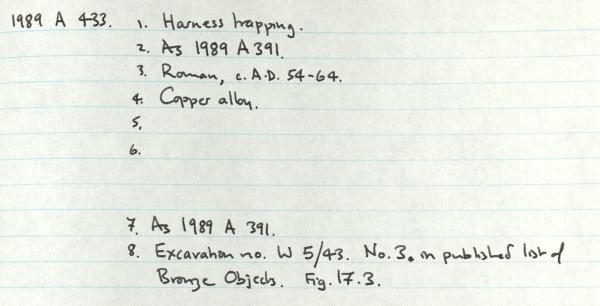 1989 A 433. 1. Harness trapping.
2. As 1989 A 391.
3. Roman, c. A.D. 54-64.
4. Copper alloy.
5.
6.
7. As 1989 A 391.
8. Excavation no. W 5/43. No. 3. in published list of
Bronze Objects. Fig. 17.3.